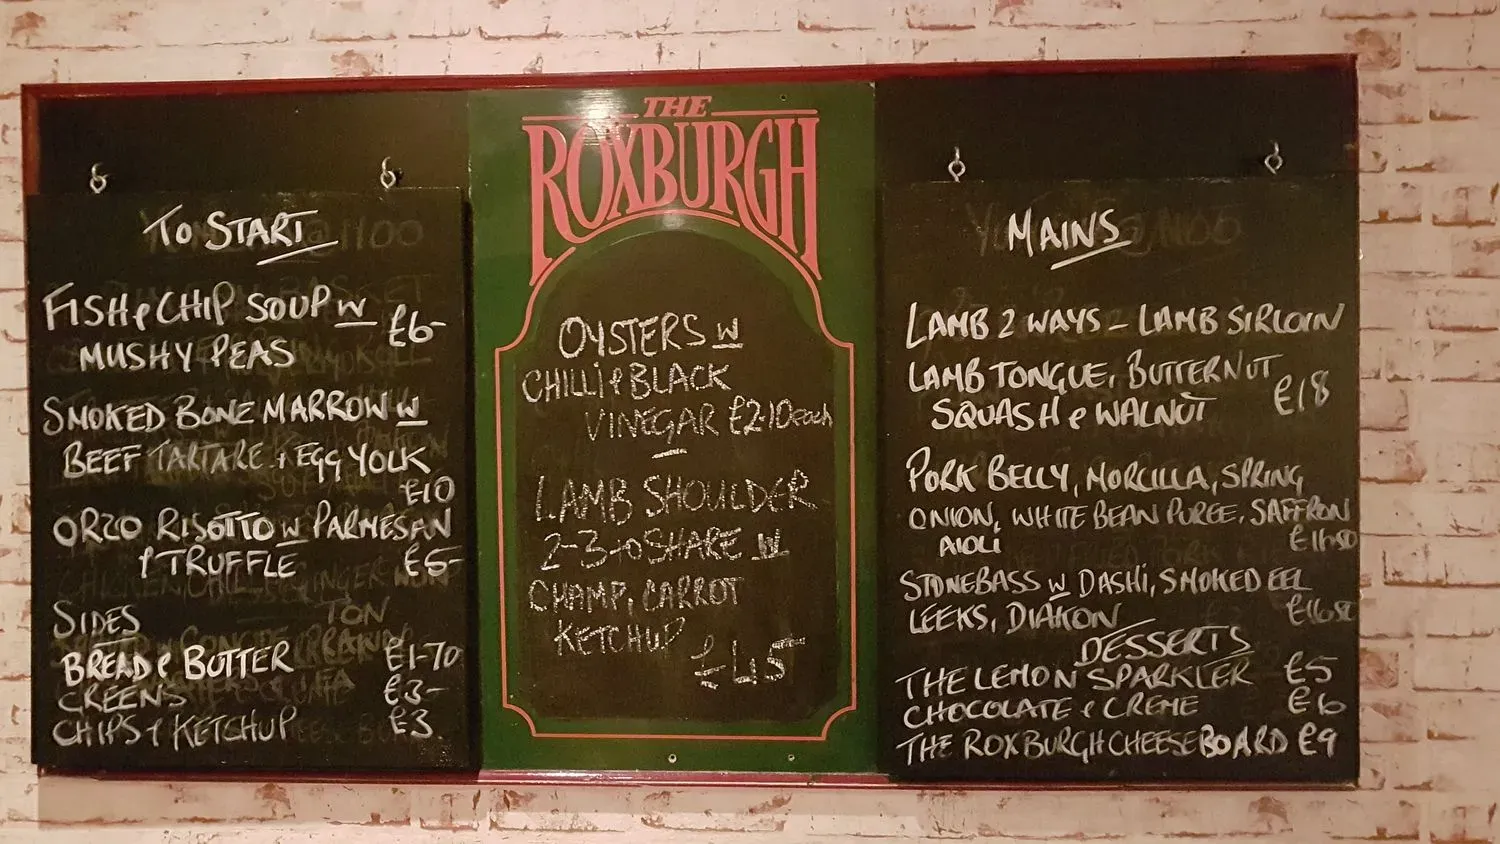 TO START
FISH & CHIP SOUP W
MUSHY PEAS £6-
SMOKED BONE MARROW W
BEEF TARTARE + EGG YOLK
£10
ORZO RISOTTO W PARMESAN
& TRUFFLE £5-
SIDES
BREAD & BUTTER £1-70
GREENS £3-
CHIPS + KETCHUP £3
THE
ROXBURGH
OYSTERS W
CHILLI & BLACK
VINEGAR £2-10 each
LAMB SHOULDER
2-3 to SHARE W
CHAMP, CARROT
KETCHUP
£45
MAINS
LAMB 2 WAYS - LAMB SIRLOIN
LAMB TONGUE, BUTTERNUT
SQUASH & WALNUT £18
PORK BELLY, MORCILLA, SPRING
ONION, WHITE BEAN PUREE, SAFFRON
AIOLI £16.50
STONEBASS W DASHI, SMOKED EEL
LEEKS, DIAKON £16.50
DESSERTS
THE LEMON SPARKLER £5
CHOCOLATE & CREME £6
THE ROXBURGH CHEESEBOARD £9